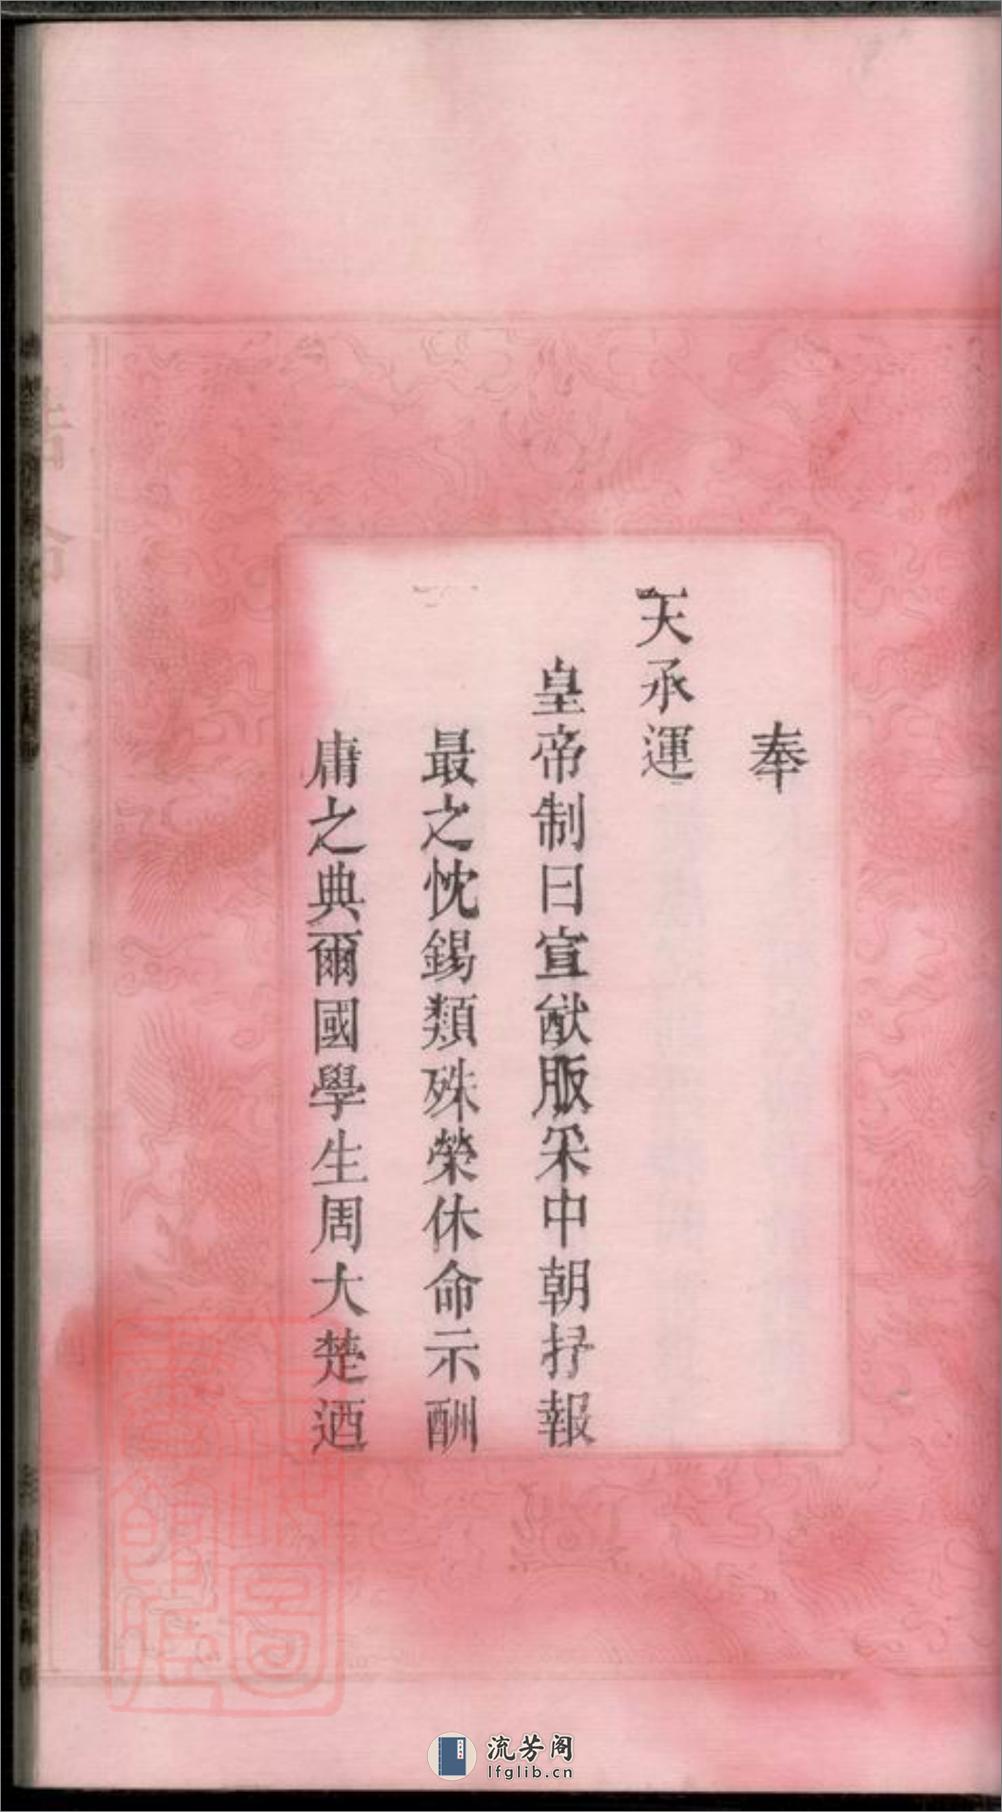 奉
天承運
皇帝制曰宣猷服采中朝抒報
最之忱錫類殊榮休命示酬
庸之典爾國學生周大楚迺
誥命
上海圖書館藏
流芳阁
lfglib.cn